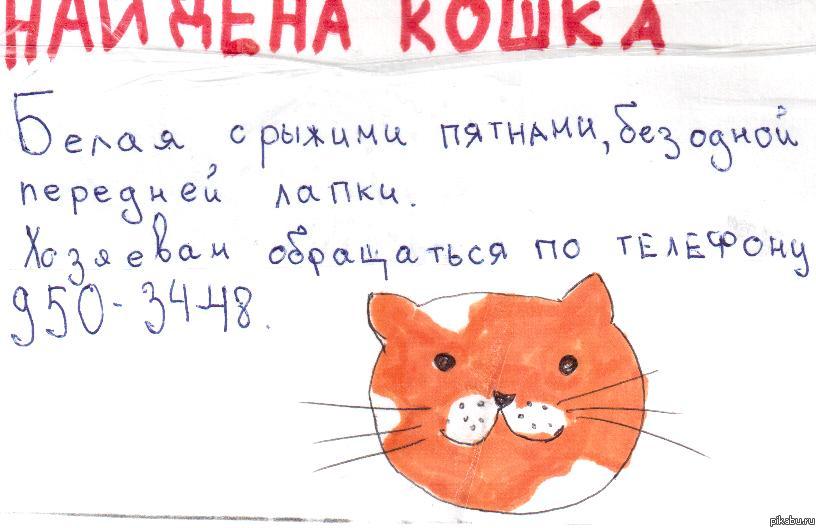 НАЙДЕНА КОШКА
Белая с рыжими пятнами, без одной
передней лапки.
Хозяевам обращаться по телефону
950-34-48.
pikabu.ru